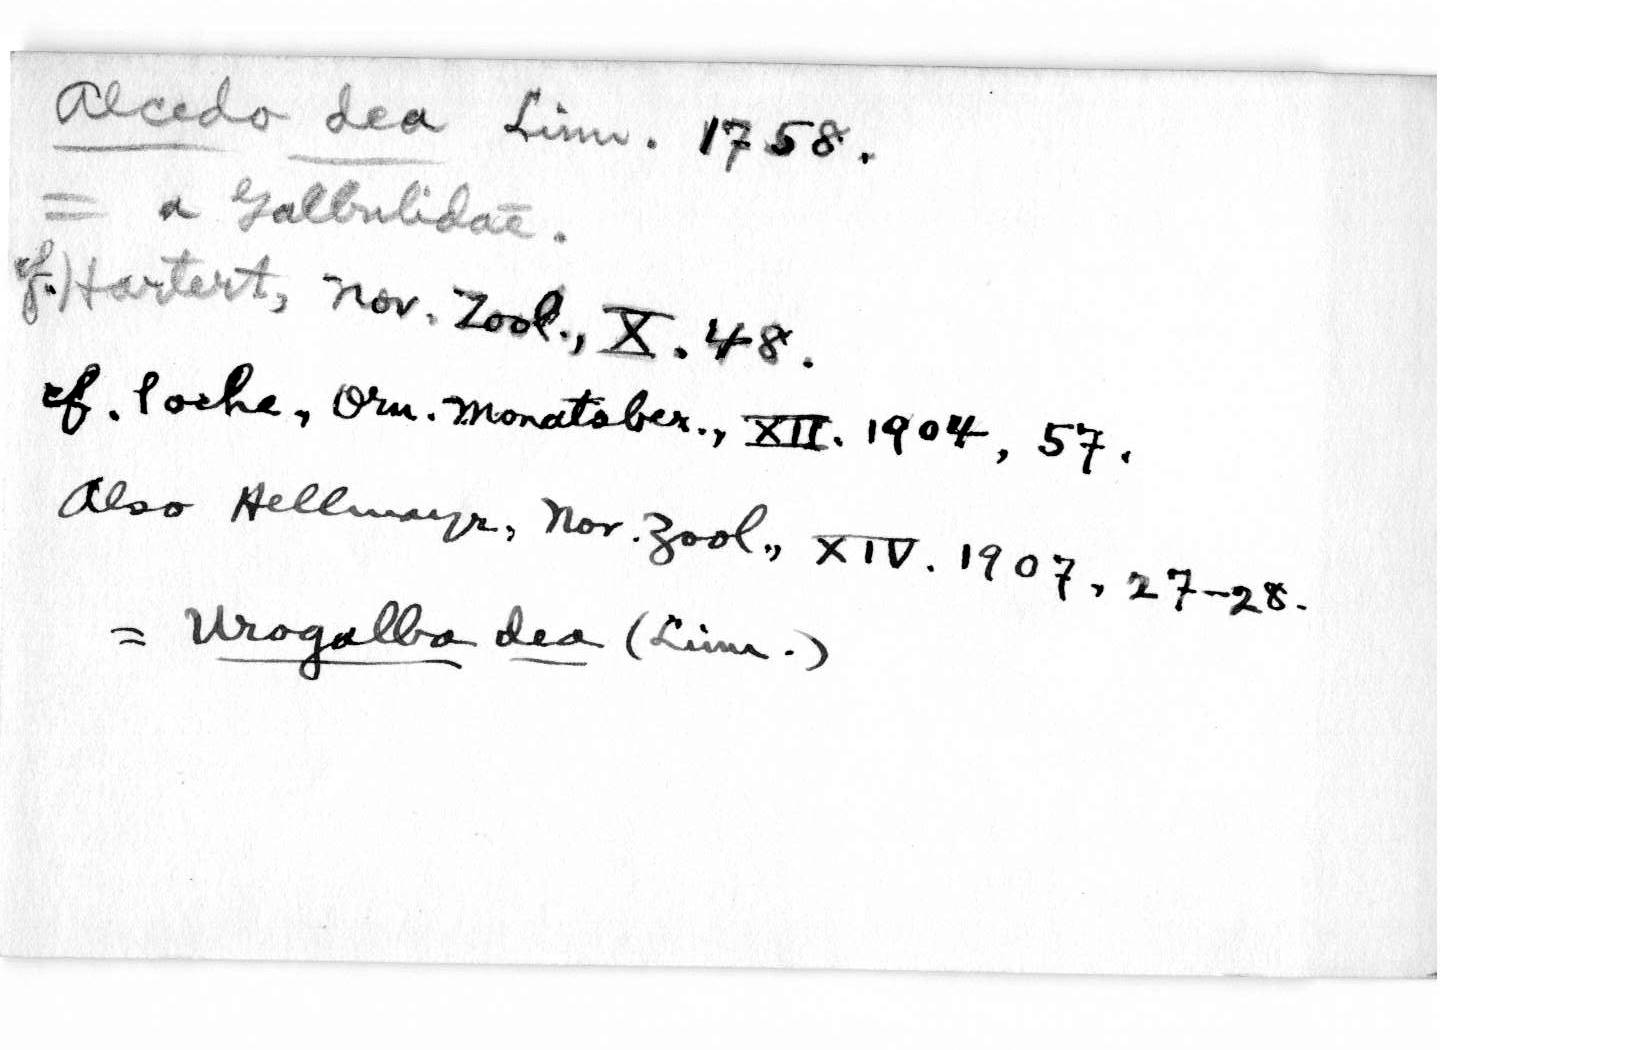 Alcedo dea Linn. 1758.
= a Galbulidae.
cf. Hartert, Nov. Zool., X. 48.
cf. Poche, Orn. Monatsber., XII. 1904, 57.
Also Hellmayr, Nov. Zool., XIV. 1907, 27-28.
= Urogalba dea (Linn.)